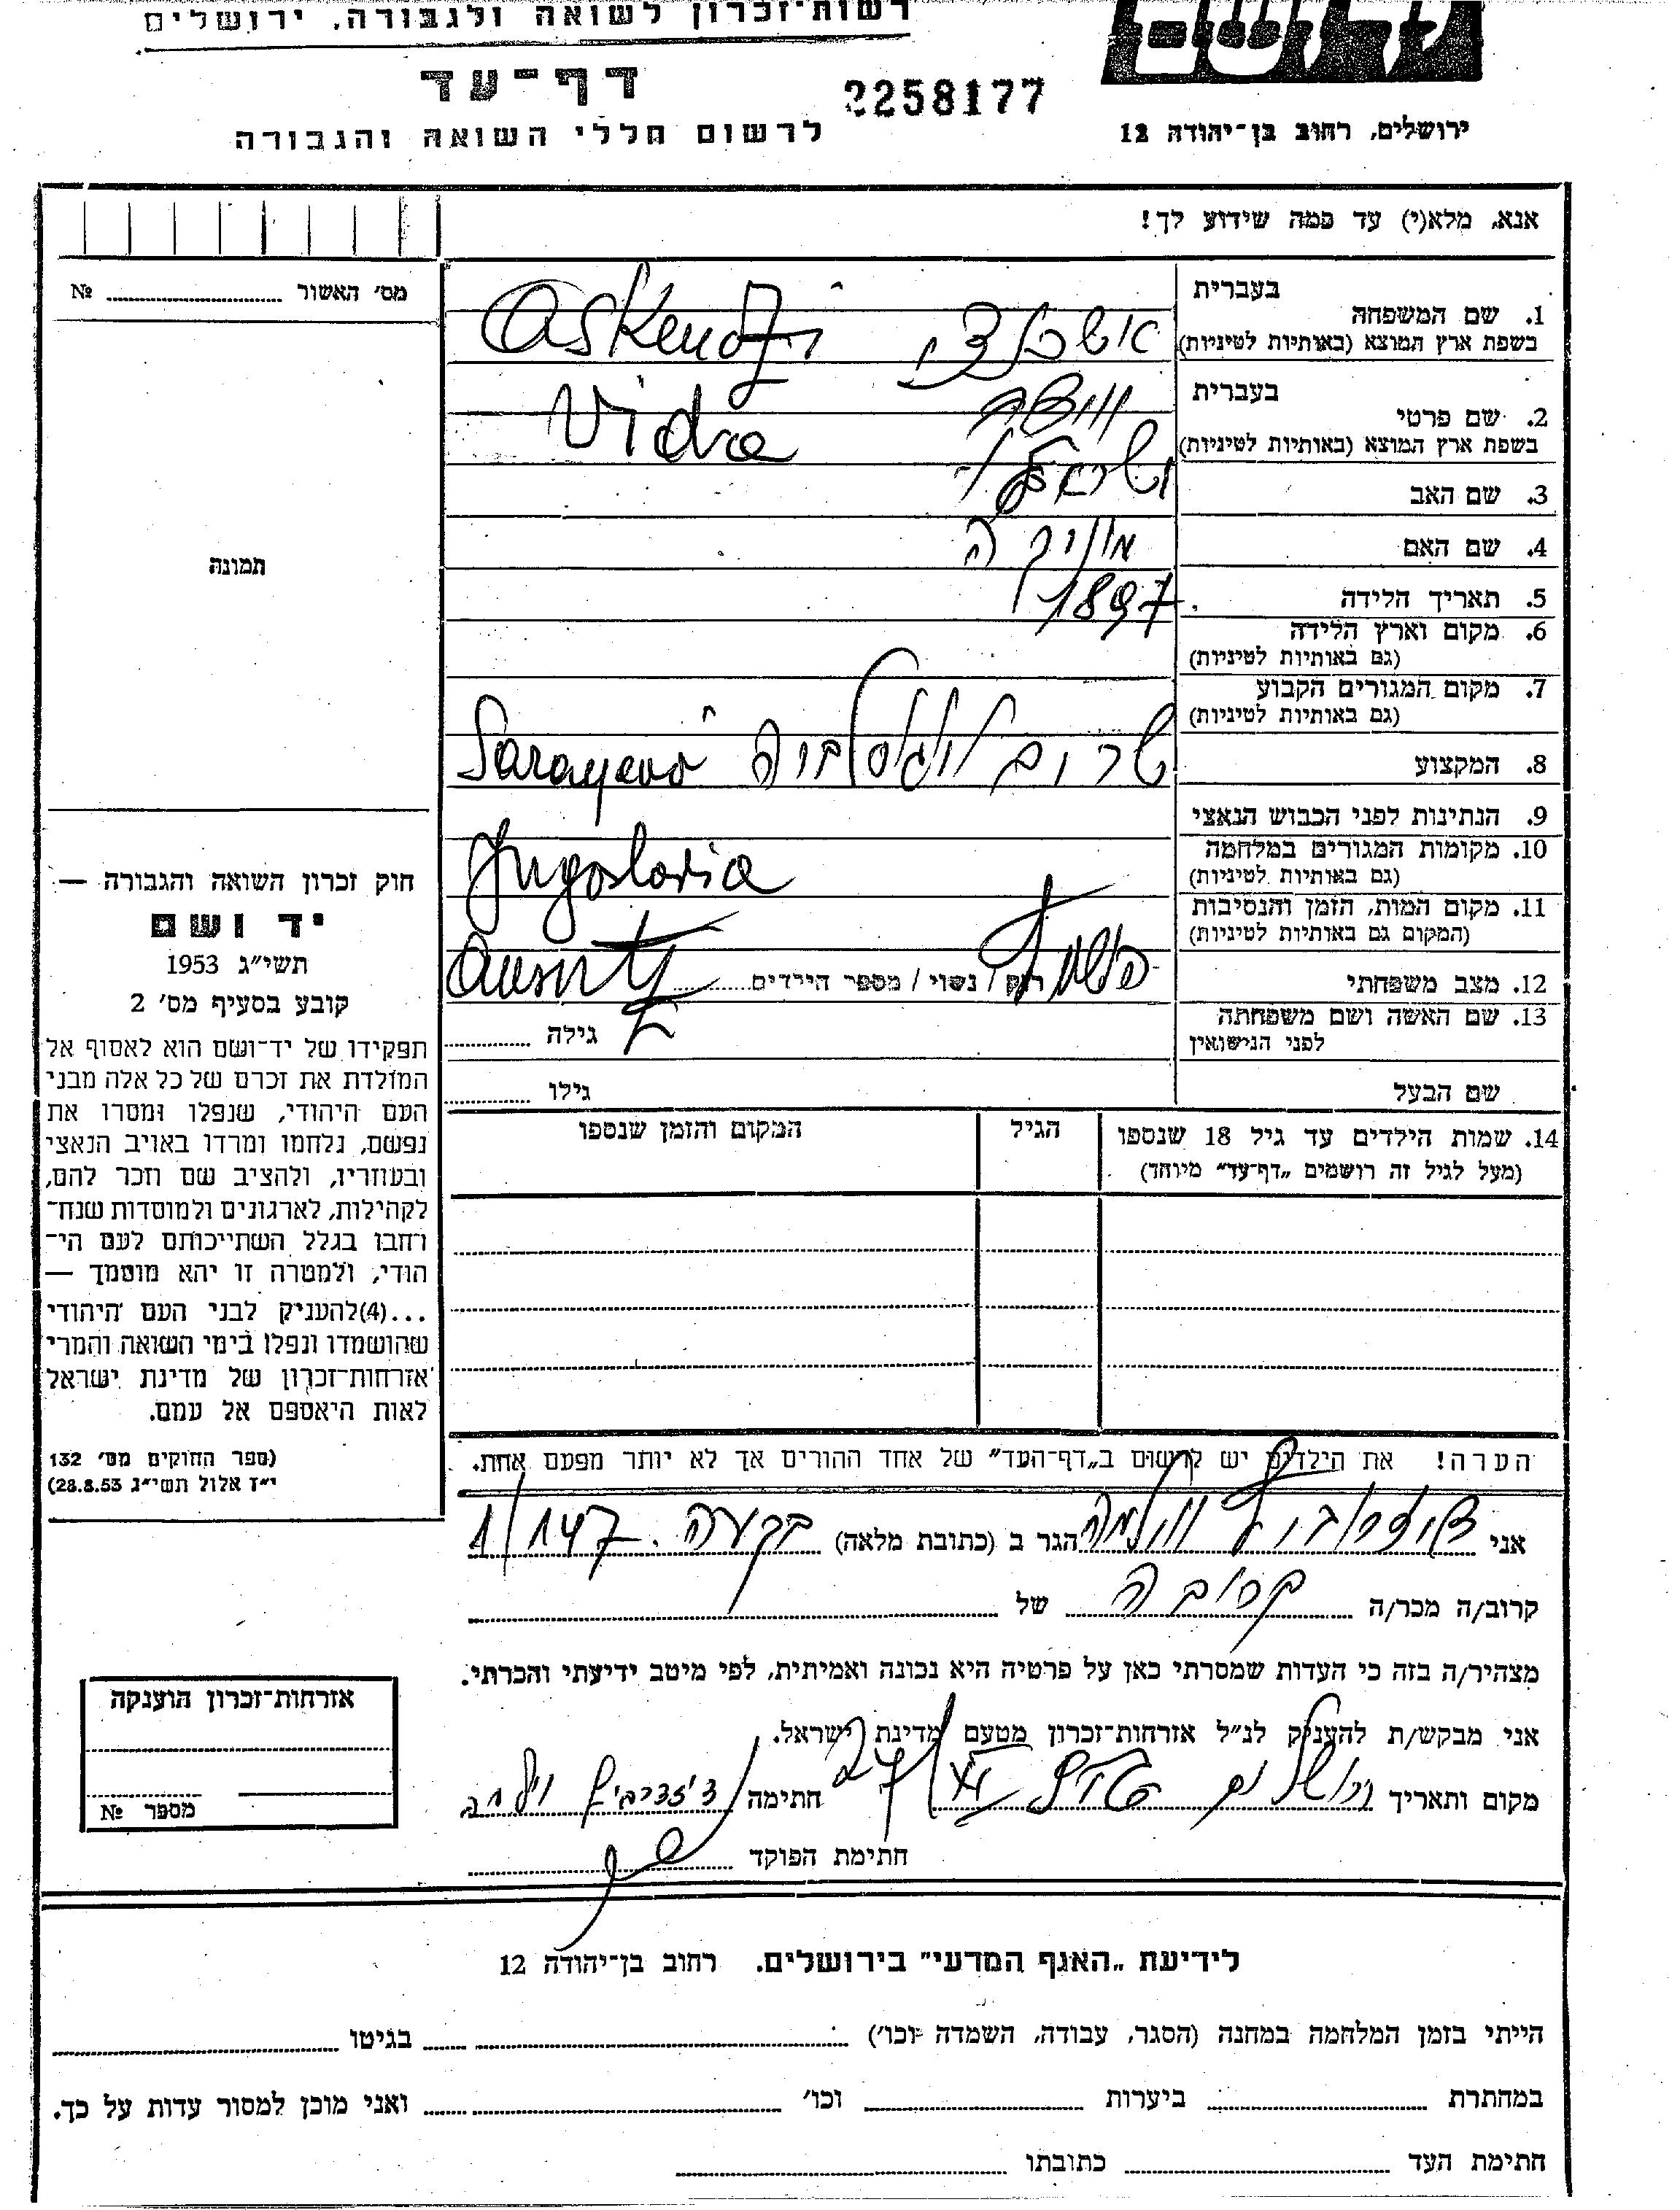 רשות־זכרון לשואה ולגבורה, ירושלים
דף־עד
2258177
לרשום חללי השואה והגבורה
ירושלים, רחוב בן־יהודה 12
אנא, מלא(י) עד כמה שידוע לך!
מס׳ האשור № 
בעברית
1. שם המשפחה
בשפת ארץ המוצא (באותיות לטיניות)
אשכנזי Askenazi
בעברית
2. שם פרטי
בשפת ארץ המוצא (באותיות לטיניות)
Vidra
3. שם האב
4. שם האם
5. תאריך הלידה 1897
6. מקום וארץ הלידה
(גם באותיות לטיניות)
7. מקום המגורים הקבוע
(גם באותיות לטיניות)
8. המקצוע
Sarayevo
9. הנתינות לפני הכבוש הנאצי
10. מקומות המגורים במלחמה
(גם באותיות לטיניות)
Jugoslavia
11. מקום המות, הזמן והנסיבות
(המקום גם באותיות לטיניות)
12. מצב משפחתי
רוק / נשוי / מספר הילדים
13. שם האשה ושם משפחתה
לפני הנישואין
גילה
שם הבעל גילו
תמונה
חוק זכרון השואה והגבורה —
יד ושם
תשי״ג 1953
קובע בסעיף מס׳ 2
תפקידו של יד־ושם הוא לאסוף אל
המולדת את זכרם של כל אלה מבני
העם היהודי, שנפלו ומסרו את
נפשם, נלחמו ומרדו באויב הנאצי
ובעוזריו, ולהציב שם וזכר להם,
לקהילות, לארגונים ולמוסדות שנח־
רחבו בגלל השתייכותם לעם הי־
הודי, ולמטרה זו יהא מוסמך —
...(4)להעניק לבני העם היהודי
שהושמדו ונפלו בימי השואה והמרי
אזרחות־זכרון של מדינת ישראל
לאות היאספם אל עמם.
(ספר החוקים מס׳ 132
י״ז אלול תשי״ג 28.8.53)
14. שמות הילדים עד גיל 18 שנספו
(מעל לגיל זה רושמים „דף־עד״ מיוחד)
הגיל
המקום והזמן שנספו
הערה! את הילדים יש לרשום ב„דף־העד״ של אחד ההורים אך לא יותר מפעם אחת.
אני הגר ב (כתובת מלאה) בקעה. 147/1
קרוב/ה מכר/ה קרובה של
מצהיר/ה בזה כי העדות שמסרתי כאן על פרטיה היא נכונה ואמיתית, לפי מיטב ידיעתי והכרתי.
אני מבקש/ת להעניק לנ״ל אזרחות־זכרון מטעם מדינת ישראל.
מקום ותאריך ירושלים חתימה
חתימת הפוקד
אזרחות־זכרון הוענקה
מספר №
לידיעת „האגף המדעי״ בירושלים. רחוב בן־יהודה 12
הייתי בזמן המלחמה במחנה (הסגר, עבודה, השמדה וכו׳) בגיטו
במחתרת ביערות וכו׳ ואני מוכן למסור עדות על כך.
חתימת העד כתובתו